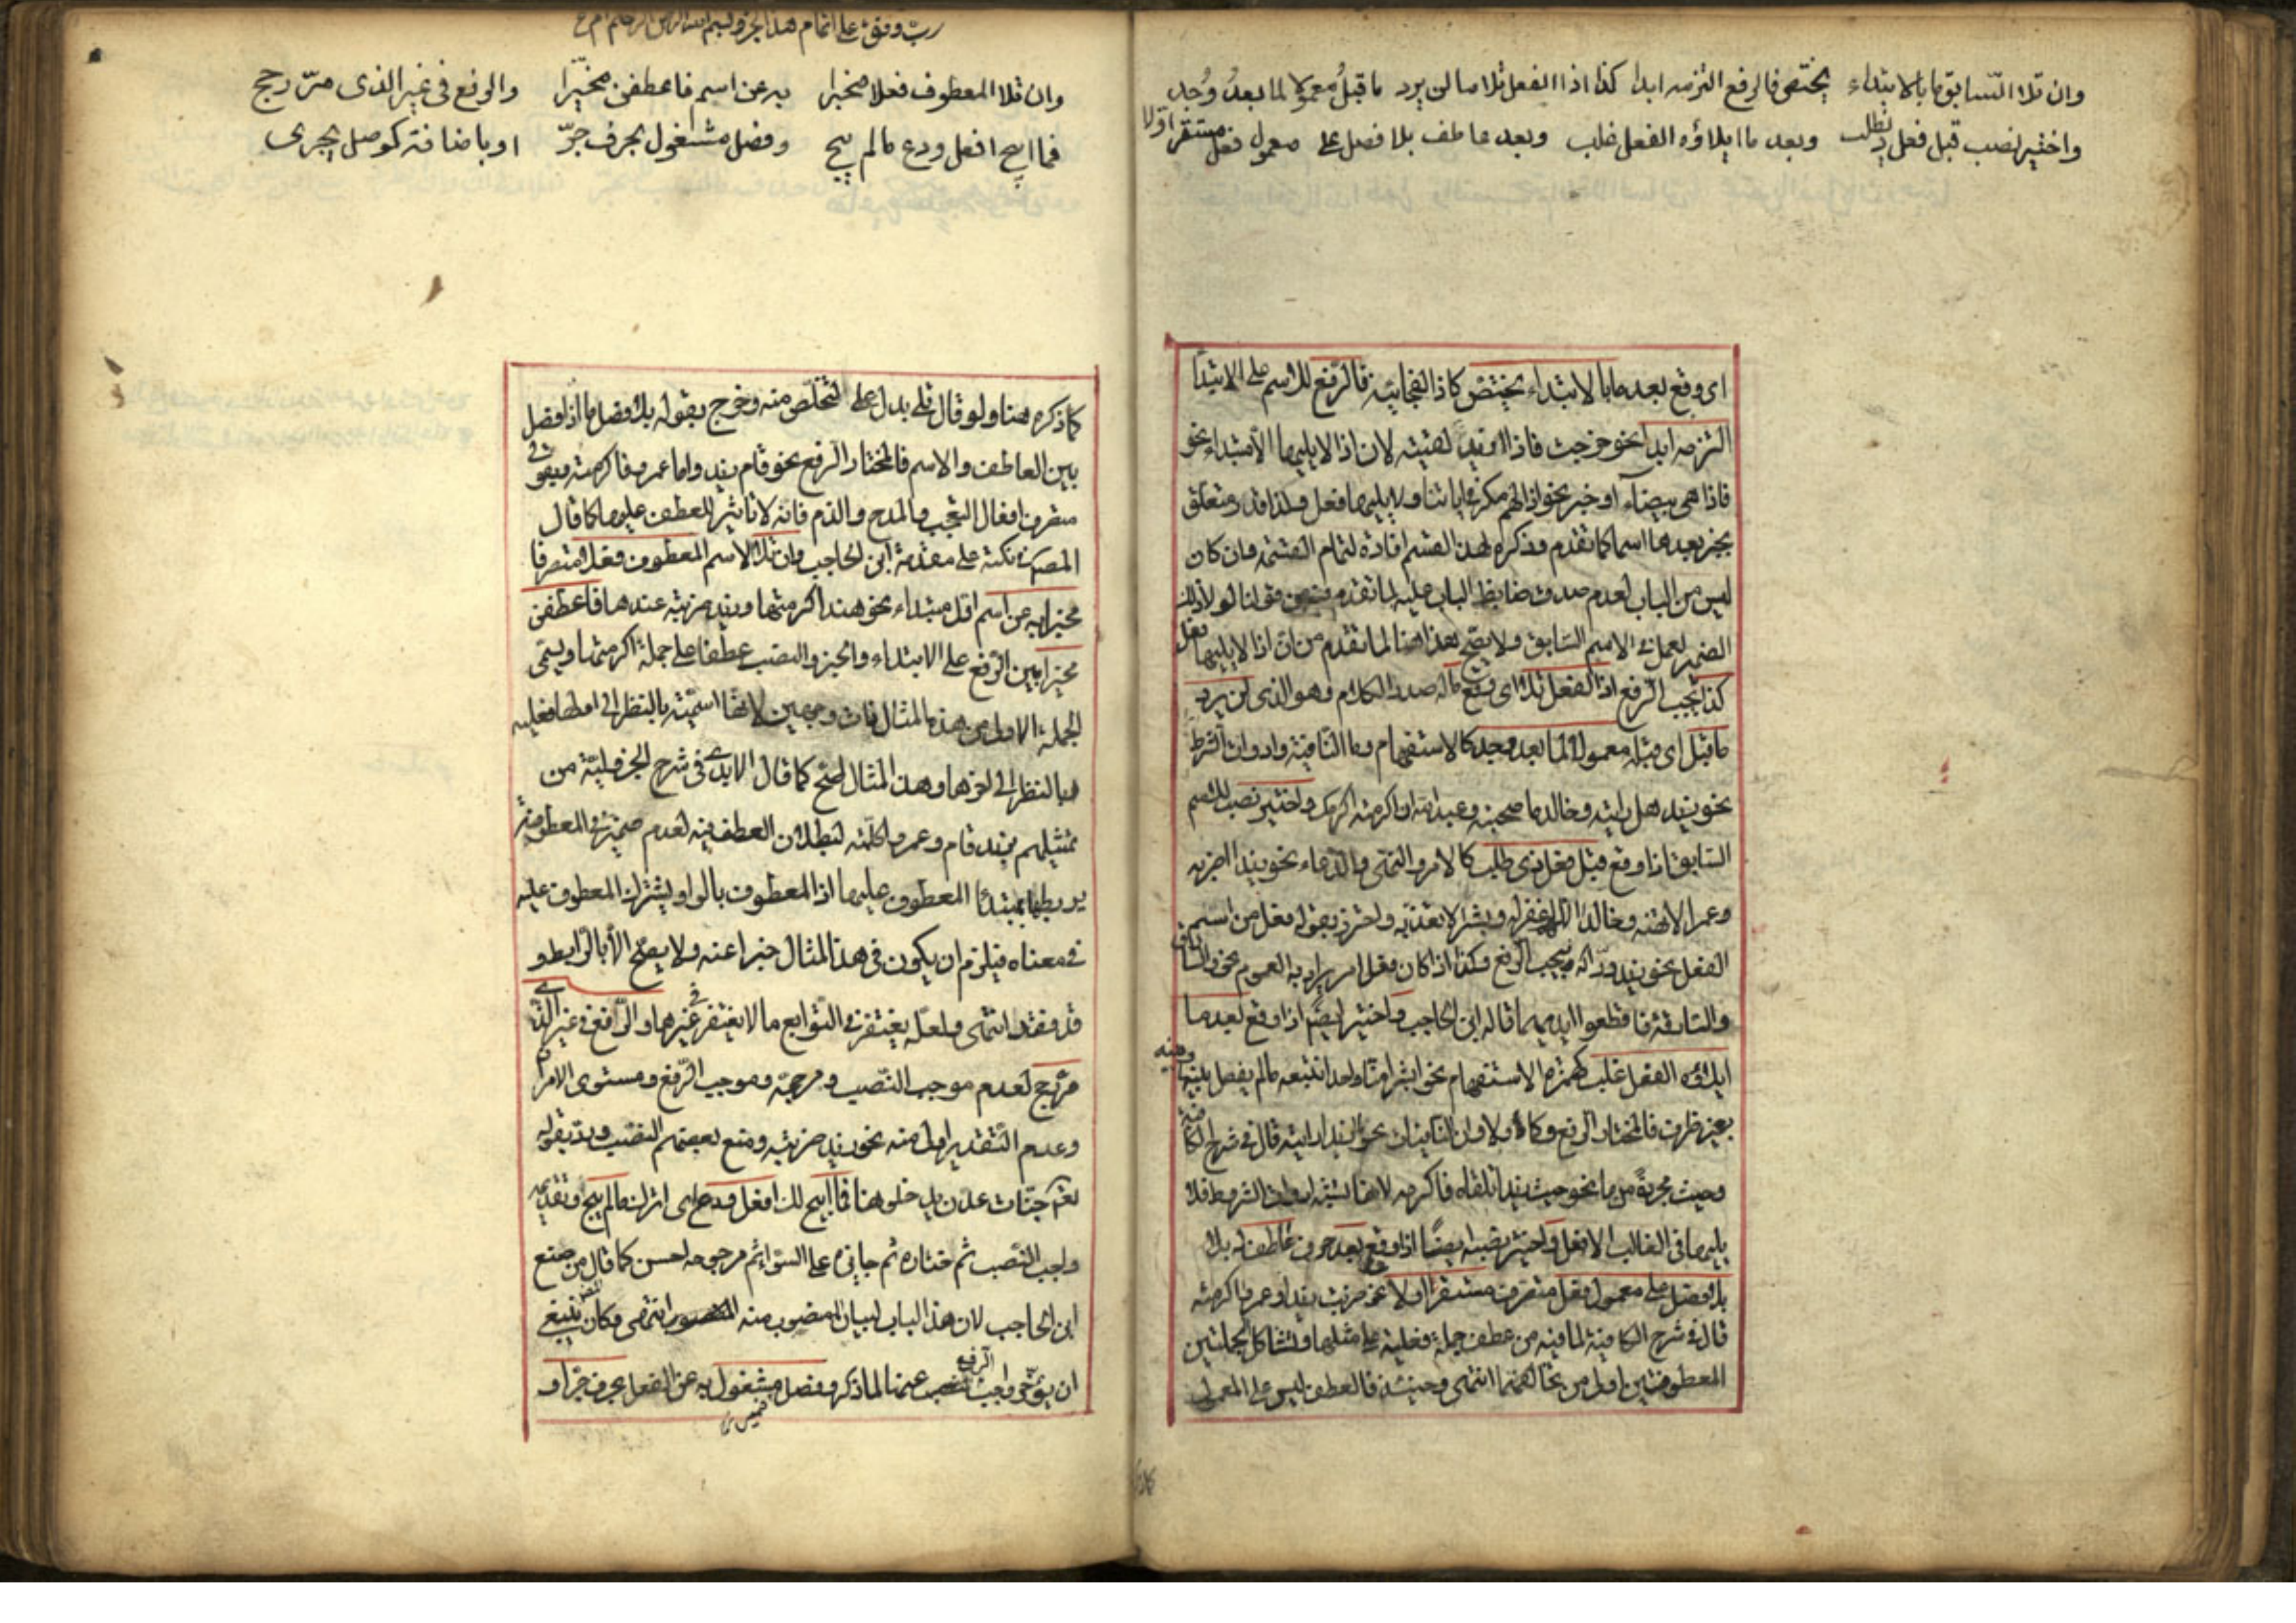 وان تلا السابق ما بالابتداء يختص فالرفع التزمه ابدا كذا اذا الفعل تلا ما لن يرد ما قبل معمولا لما بعد وجد
واختير نصب قبل فعل ذي طلب وبعد ما ايلاؤه الفعل غلب وبعد عاطف بلا فصل على معمول فعل مستقر اولا
اى وقع بعد ما بالابتداء يختص كاذا الفجائية فالرفع للاسم على الابتدا
التزمه ابدا نحو خرجت فاذا زيد لقيته لان اذا لا يليها الا مبتداء نحو
فاذا هى بيضاء او خبر نحو اذا لهم مكر فى اياتنا ولا يليها فعل ولذا قدر متعلق
بعدها اسما كما تقدم وذكره لهذا القسم افادة لتمام القسمة وان كان
ليس من الباب لعدم صدق ضابط الباب عليه لما تقدم من قولنا لولا ذلك
الضمير لعمل فى الاسم السابق ولا يصح هذا هنا لما تقدم من ان اذا لا يليها فعل
كذا يجب الرفع اذا الفعل تلا اى وقع ما له صدر الكلام وهو الذى لن يرد
ما قبل اى قبله معمولا لما بعد وجد كالاستفهام وما النافية وادوات الشرط
نحو زيد هل رايته وخالد ما صحبته وعبد الله ان اكرمته اكرمك واختير نصب للاسم
السابق اذا وقع قبل فعل ذى طلب كالامر والنهى والدعاء نحو زيدا اضربه
وعمرا لا تهنه وخالدا اللهم اغفر له وبشرا لا تعذبه واحترز بقوله فعل من اسم
الفعل نحو زيد دراكه فيجب الرفع وكذا اذا كان فعل امر يراد به العموم نحو والسارق
والسارقة فاقطعوا ايديهما قاله ابن الحاجب واختير ايضا اذا وقع بعد ما
ايلاؤه الفعل غلب كهمزة الاستفهام نحو ابشرا منا واحدا نتبعه ما لم يفصل بينها وبينه
بغير ظرف فالمختار الرفع وكما ولا وان النافيات نحو ما زيدا رايته قال فى شرح الكافية
وحيث مجردة من ما نحو حيث زيدا تلقاه فاكرمه لانها تشبه ادوات الشرط فلا
يليها فى الغالب الا فعل واختير نصبه ايضا اذا وقع بعد حرف عاطف له بلا
بلا فصل على معمول فعل متصرف مستقر اولا نحو ضربت زيدا وعمرا اكرمته
قال فى شرح الكافية لما فيه من عطف جملة فعلية على مثلها وتشاكل الجملتين
المعطوفتين اولى من تخالفهما انتهى وحينئذ فالعطف ليس على المعمول
رب وفق على اتمام هذا الجزو بسم الله الرحمن الرحيم
وان تلا المعطوف فعلا مخبرا به عن اسم فاعطفن مخيرا والرفع فى غير الذى مر رجح
فما ابيح افعل ودع ما لم يبح وفصل مشغول بحرف جر او باضافة كوصل يجرى
كما ذكره هنا ولو قال تلى بدل على لتخلص منه وخرج بقوله بلا فصل ما اذا فصل
بين العاطف والاسم فالمختار الرفع نحو قام زيد واما عمرو فاكرمته وبقولى
متصرف افعال التعجب والمدح والذم فانه لا تاثير للعطف عليها كما قال
المصنف فى نكته على مقدمة ابن الحاجب وان تلا الاسم المعطوف فعلا متصرفا
مخبرا به عن اسم اول مبتداء نحو هند اكرمتها وزيد ضربته عندها فاعطفن
مخيرا بين الرفع على الابتداء والخبر والنصب عطفا على جملة اكرمتها وتسمى
الجملة الاولى من هذا المثال ذات وجهين لانها اسمية بالنظر الى اولها فعلية
بالنظر الى اخرها وهذا المثال اصح كما قال الابدى فى شرح الجزولية من
تمثيلهم بزيد قام وعمرو كلمته لبطلان العطف فيه لعدم ضمير فى المعطوفة
يربطها بمبتدئا المعطوف عليها اذ المعطوف بالواو يشترك المعطوف عليه
فى معناه فيلزم ان يكون فى هذا المثال خبرا عنه ولا يصح الا بالرابط و
قد فقد انتهى ولعله يغتفر فى التوابع ما لا يغتفر فى غيرها والرفع فى غير الذى
مر رجح لعدم موجب النصب ومرجحه وموجب الرفع ومستوى الامرين
وعدم التقدير اولى منه نحو زيد ضربته ومنع بعضهم النصب ورد بقوله
تعالى جنات عدن يدخلونها فما ابيح لك افعل ودع اى اترك ما لم يبح وتقديم
واجب النصب ثم مختاره ثم جائزه على السواء ثم مرجوحه احسن كما قال من صنع
ابن الحاجب لان هذا الباب لبيان المنصوب منه انتهى وكان ينبغى
ان يؤخر واجب الرفع عنها لما ذكر وفصل مشغول به عن الفعل بحرف جر او